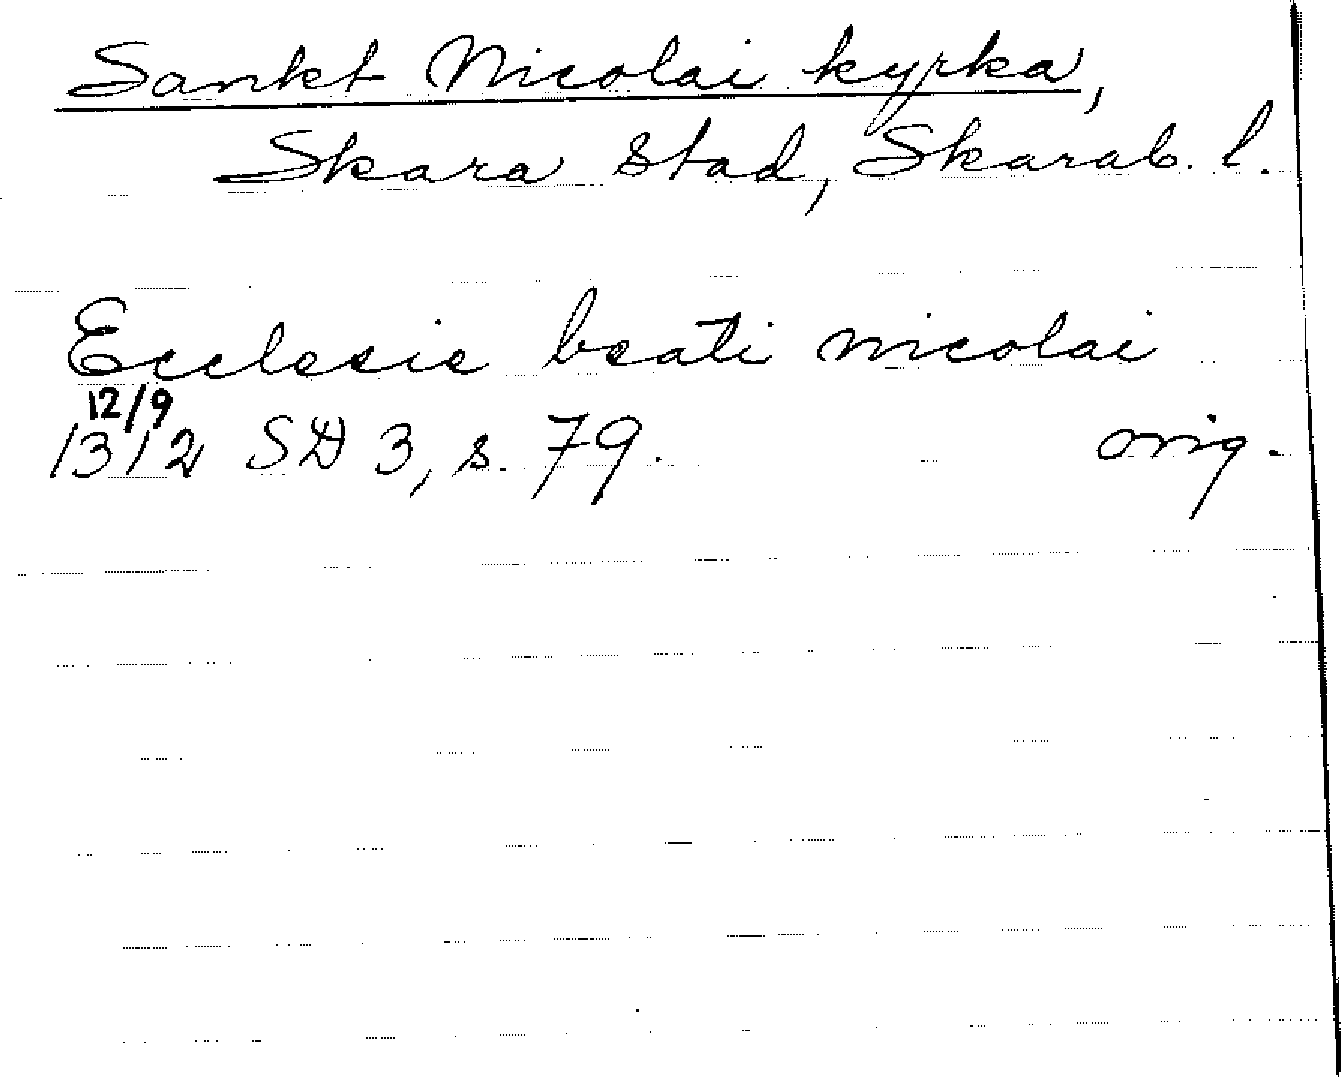 Sankt Nicolai kyrka,
Skara stad, Skarab. l.
Ecclesie beati nicolai
12/9
1312 SD 3, s. 79. orig.